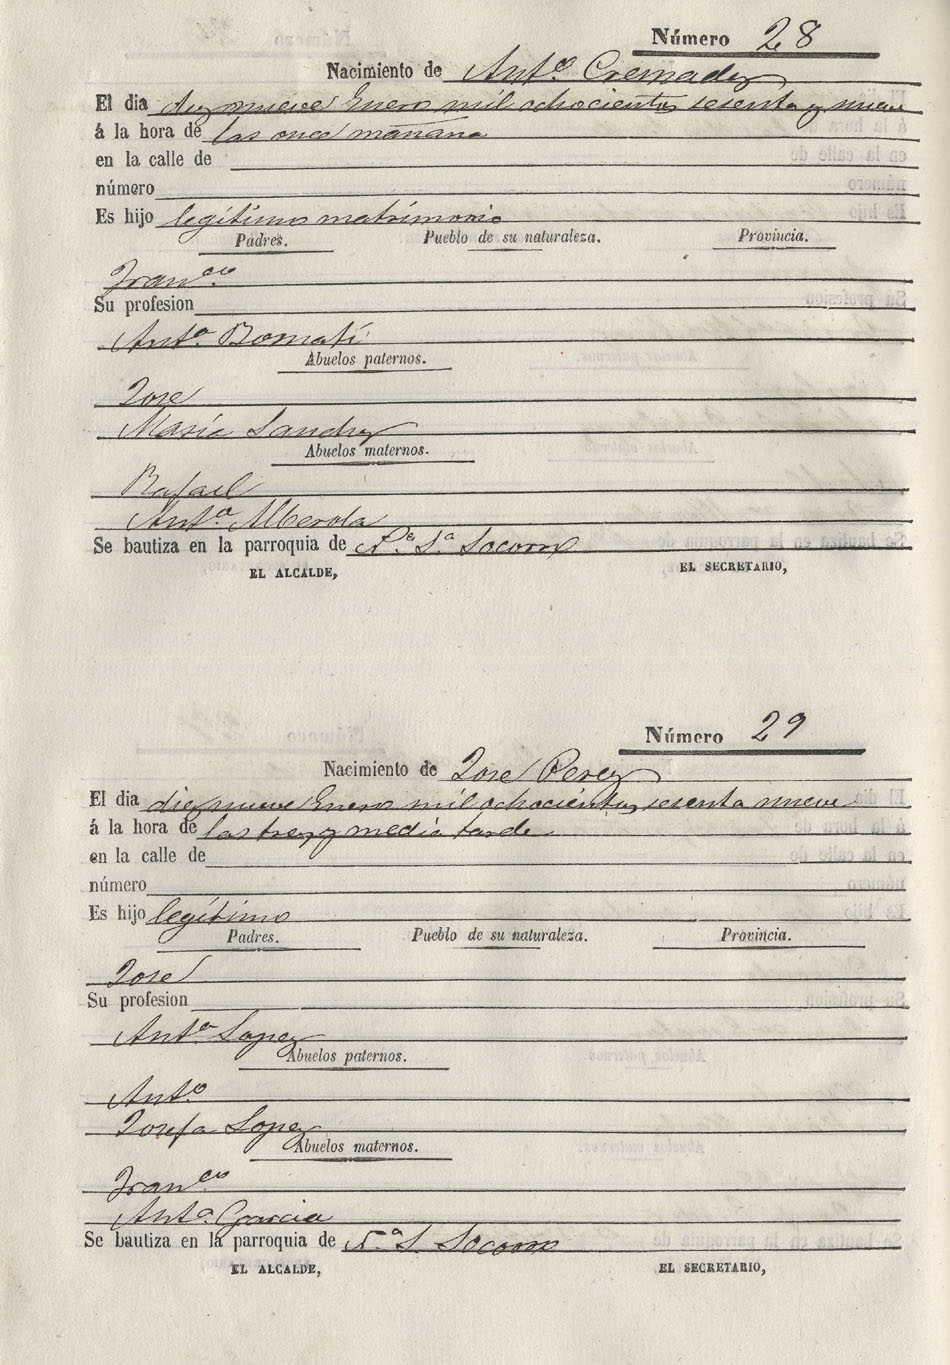 Número 28
Nacimiento de Antº Cremadez
El dia diez nueve Enero mil ochocientos sesenta y nueve
á la hora de las once mañana
en la calle de
número
Es hijo legítimo matrimonio
Padres. Pueblo de su naturaleza. Provincia.
Franco
Su profesion
Antª Bomatí
Abuelos paternos.
Jose
Maria Sanchez
Abuelos maternos.
Rafael
Antª Alberola
Se bautiza en la parroquia de Sª Socorro
EL ALCALDE, EL SECRETARIO,
Número 29
Nacimiento de Jose Perez
El dia diez nueve Enero mil ochocientos sesenta nueve
á la hora de las tres y media tarde
en la calle de
número
Es hijo legítimo
Padres. Pueblo de su naturaleza. Provincia.
Jose
Su profesion
Antª Lopez
Abuelos paternos.
Antº
Josefa Lopez
Abuelos maternos.
Franco
Antª Garcia
Se bautiza en la parroquia de S. Socorro
EL ALCALDE, EL SECRETARIO,